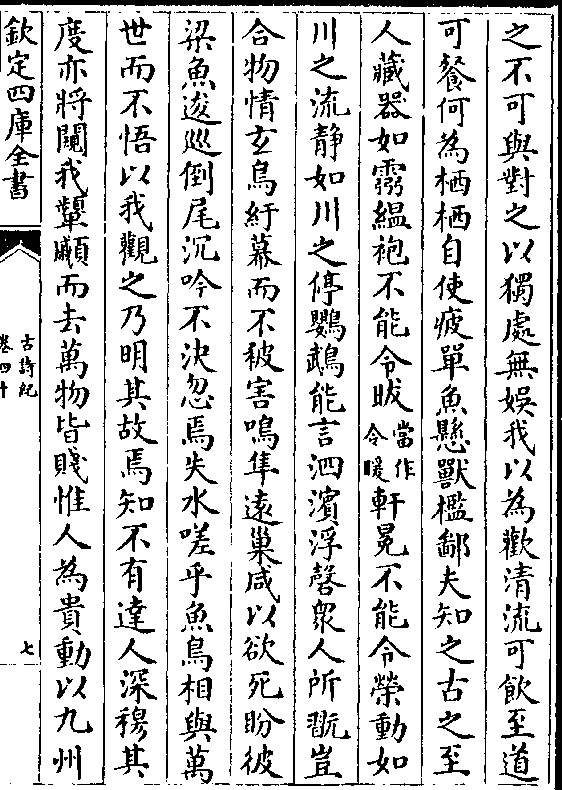 之不可與對之以獨處無娛我以為歡清流可飲至道
可餐何為栖栖自使疲單魚懸獸檻鄙夫知之古之至
人藏器如靈縕袍不能令昹當作令暖軒冕不能令榮動如
川之流靜如川之停鸚鵡能言泗濱浮磬衆人所翫豈
合物情玄鳥紆幕而不被害鳴隼遠巢咸以欲死眄彼
梁魚逡巡倒尾沉吟不決忽焉失水嗟乎魚鳥相與萬
世而不悟以我觀之乃明其故焉知不有達人深穆其
度亦將闚我顰顣而去萬物皆賤惟人為貴動以九州
欽定四庫全書
古詩紀
卷四十
七